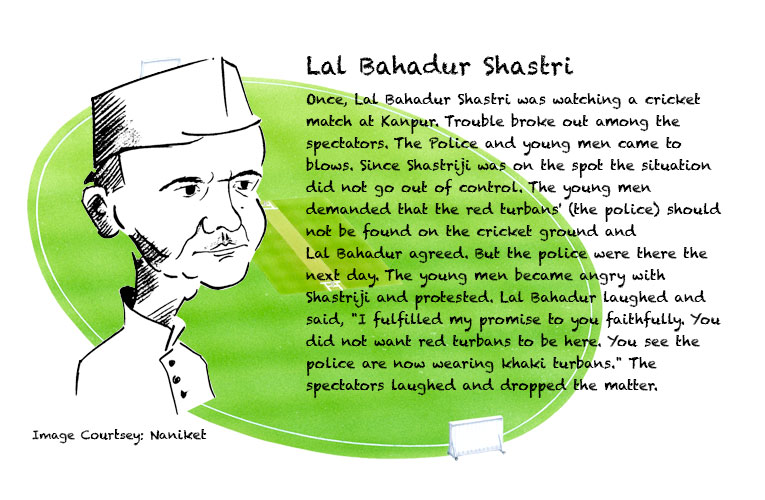 Lal Bahadur Shastri
Once, Lal Bahadur Shastri was watching a cricket
match at Kanpur. Trouble broke out among the
spectators. The Police and young men came to
blows. Since Shastriji was on the spot the situation
did not go out of control. The young men
demanded that the red turbans' (the police) should
not be found on the cricket ground and
Lal Bahadur agreed. But the police were there the
next day. The young men became angry with
Shastriji and protested. Lal Bahadur laughed and
said, "I fulfilled my promise to you faithfully. You
did not want red turbans to be here. You see the
police are now wearing khaki turbans." The
spectators laughed and dropped the matter.
Image Courtsey: Naniket